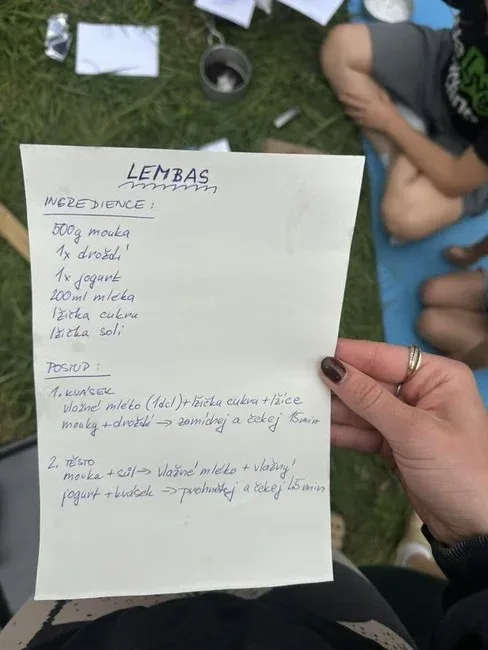 LEMBAS
INGREDIENCE:
500g mouka
1x droždí
1x jogurt
200ml mléka
lžička cukru
lžička soli
POSTUP:
1. KVÁSEK
vlažné mléko (1dcl)+lžička cukru+lžíce
mouky+droždí → zamíchej a čekej 15min
2. TĚSTO
mouka+sůl → vlažné mléko + vlažný
jogurt+kvásek → prohněťej a čekej 45min